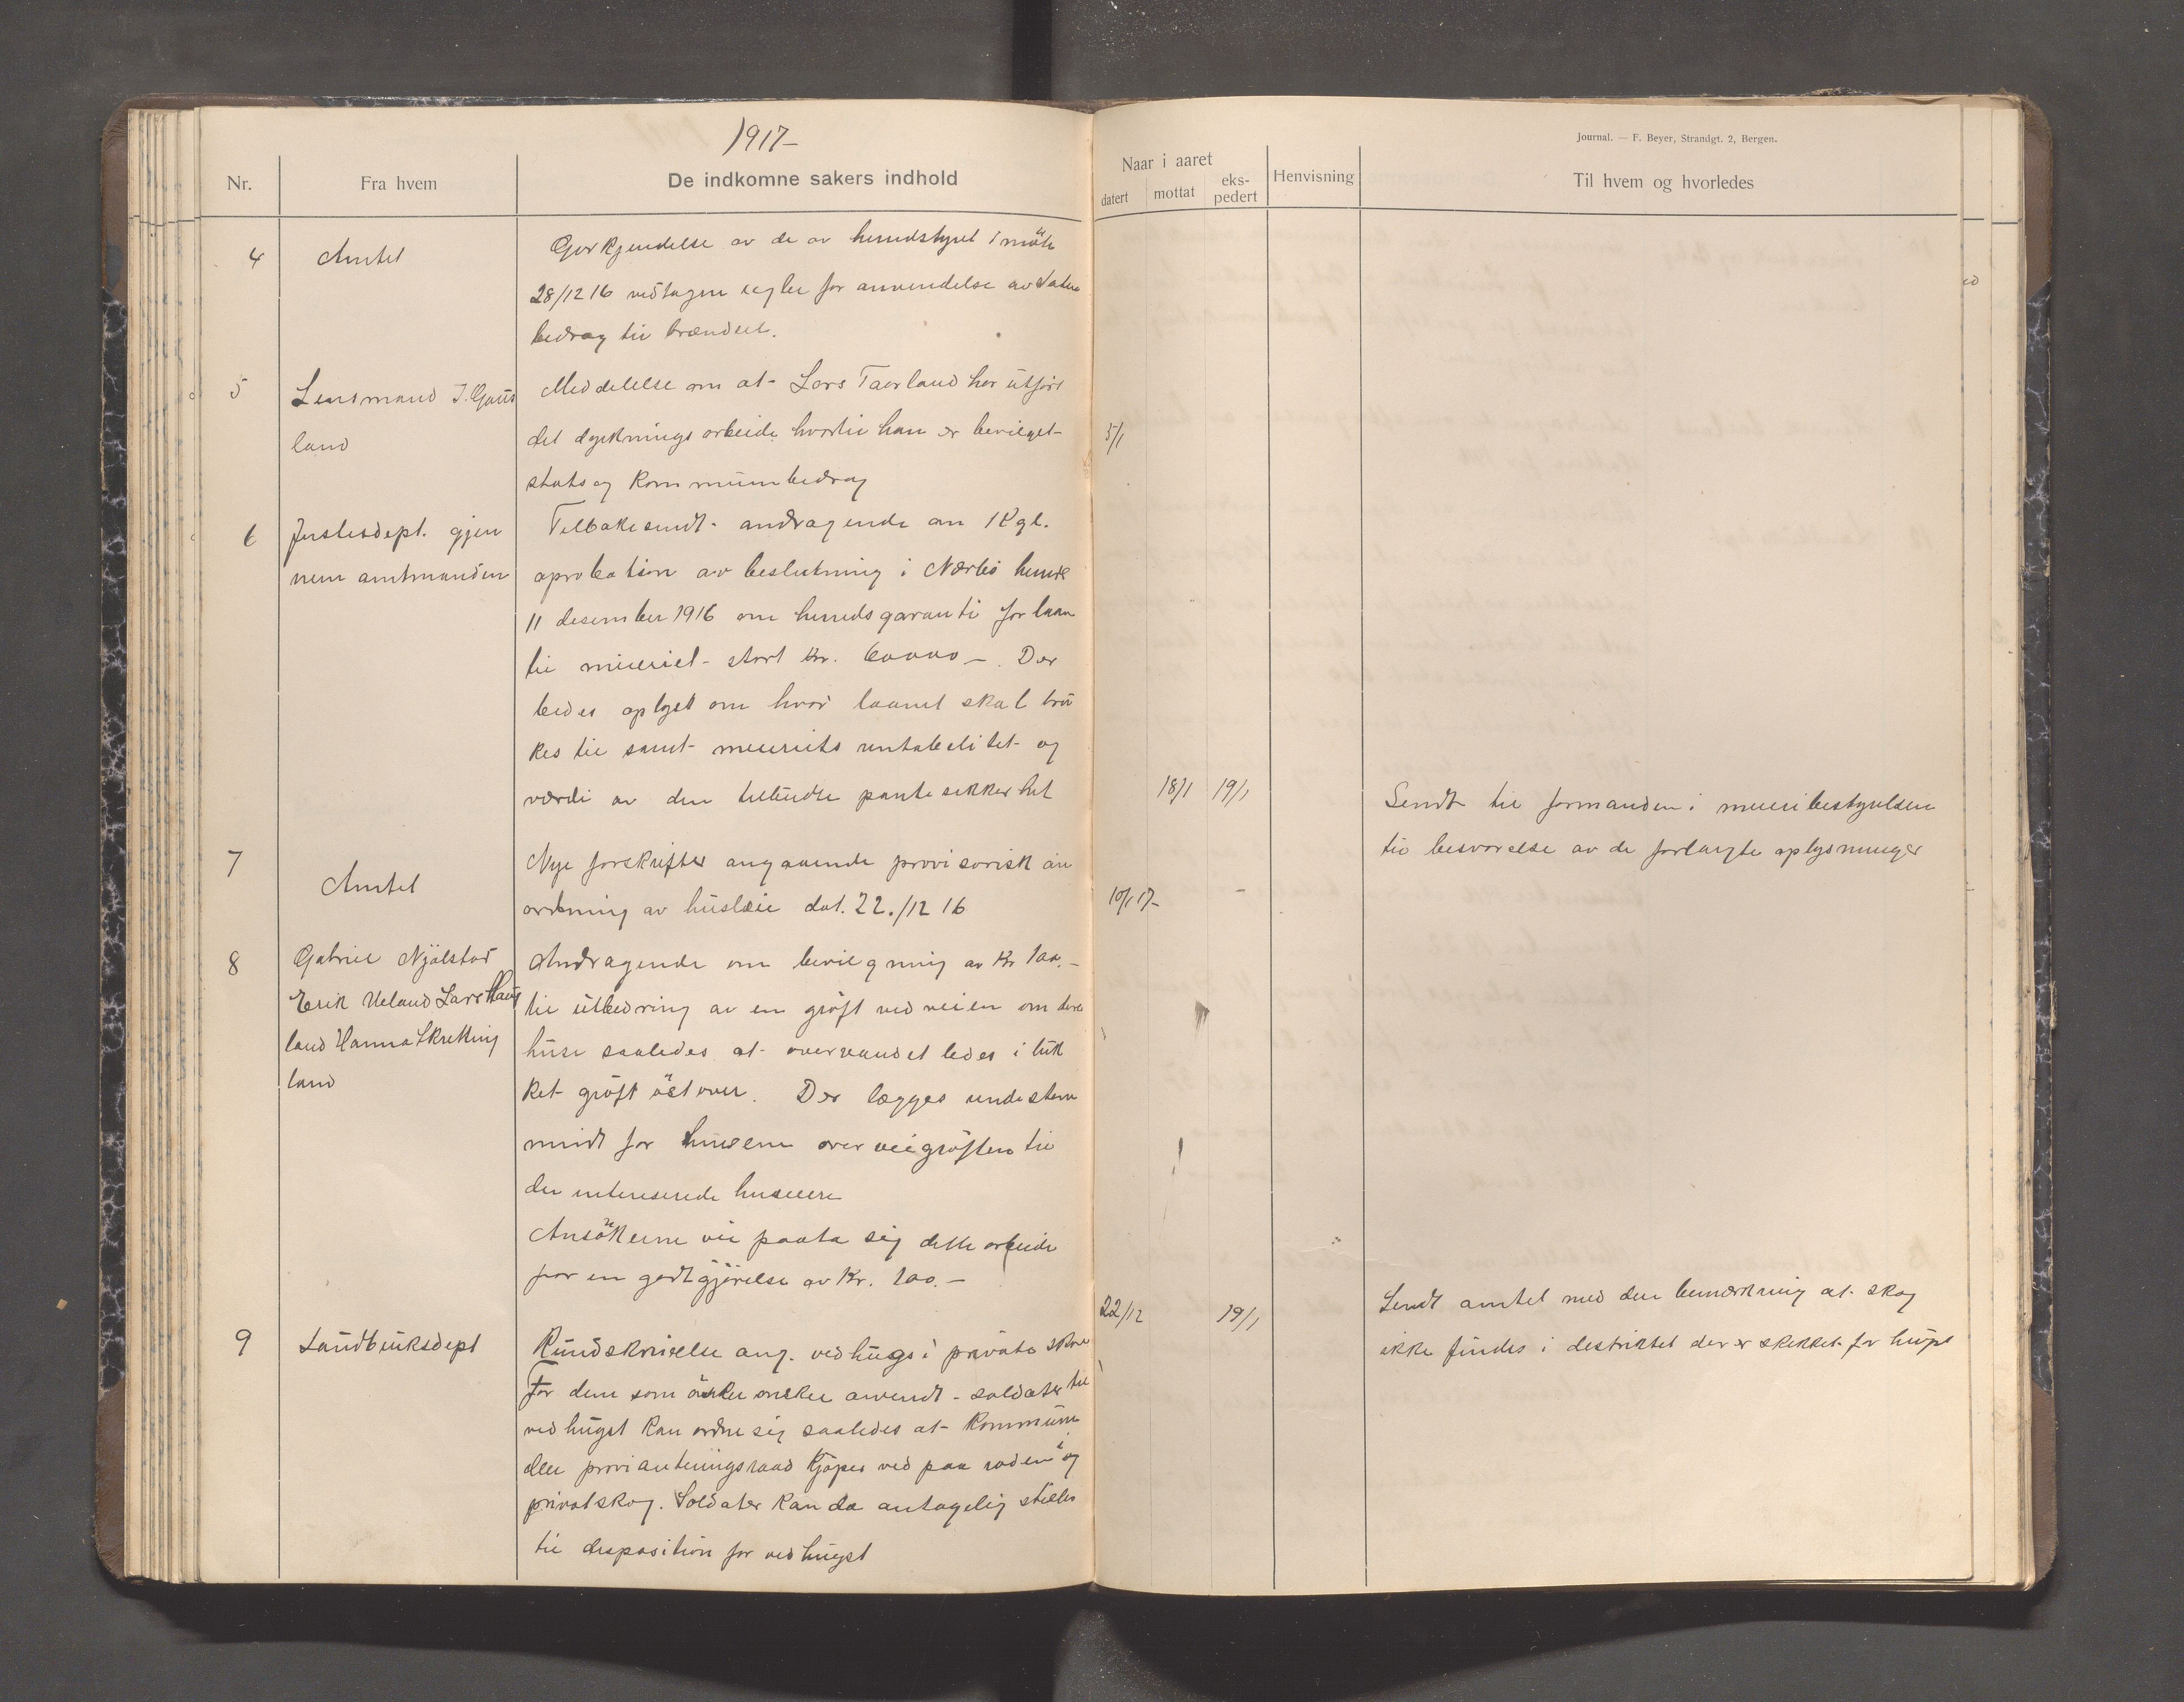 1917-
Nr.
Fra hvem
De indkomne sakers indhold
4
Amtet
Godkjendelse av de av herredstyret i møte
28/12 16 vedtagne regler for anvendelse av statens
bidrag til brændsel.
5
Lensmand J. Gaus
land
Meddelelse om at Lars Taarland har utført
det dyrknings arbeide hvortil han er bevilget
stats og kommunebidrag
6
Justisdept. gjen
nem amtmanden
Tilbakesendt andragende om Kgl.
aprobation av beslutning i Nærbø herred
11 desember 1916 om herredsgaranti for laan
til meieriet stort kr. 60000 -. Der
bedes oplyst om hvad laanet skal bru
kes til samt meieriets rentabelitet og
værdi av den tilbudte pantesikkerhet
7
Amtet
Nye forskrifter angaaende provisorisk an
ordning av husleie dat. 22./12 16
8
Gabriel Njølstad
Erik Ueland Lars Haug
land Hanna Skretting
land
Andragende om bevilgning av Kr 100.-
til utbedring av en grøft ved veien om deres
huse saaledes at overvandet ledes i luk
ket grøft østover. Der lægges
for husene over veigrøften til
de interesserede huseiere
Ansøkerne vil paata sig dette arbeide
for en godtgjørelse av Kr. 100.-
9
Landbruksdept
Rundskrivelse ang. vedhugs i private skove
For dem som ønsker anvendt soldater til
vedhugst kan ordne sig saaledes at kommune
eller provianteringsraad kjøper ved paa roden i og
privatskog. Soldater kan da antagelig stilles
til disposition for vedhugst
Journal. — F. Beyer, Strandgt. 2, Bergen.
Naar i aaret
datert
mottat
eks-
pedert
Henvisning
Til hvem og hvorledes
5/1
18/1 19/1
Sendt til formanden i meieribestyrelsen
til besvarelse av de forlangte oplysninger
10/1 17-
22/12
19/1
Sendt amtet med den bemærkning at skog
ikke findes i destriktet der er skikket for hugst